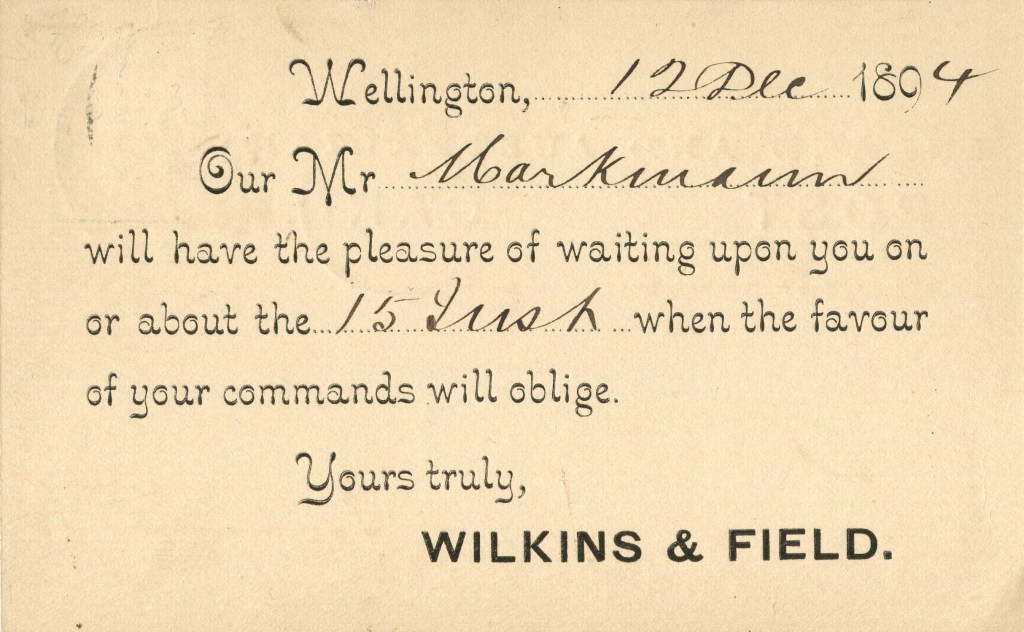 Wellington, 12 Dec 1894
Our Mr Markmann
will have the pleasure of waiting upon you on
or about the 15 Inst when the favour
of your commands will oblige.
Yours truly,
WILKINS & FIELD.